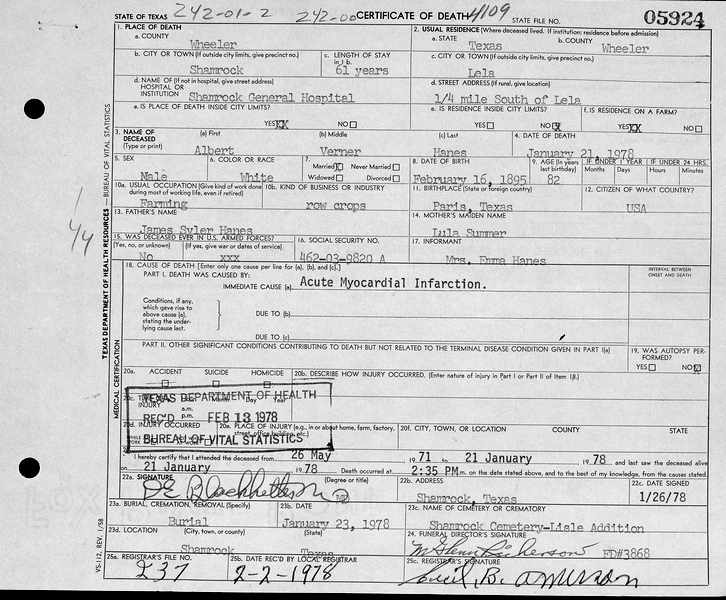 242-01-2 242-00 4109
STATE OF TEXAS CERTIFICATE OF DEATH STATE FILE NO. 05924
1. PLACE OF DEATH 2. USUAL RESIDENCE (Where deceased lived. If institution: residence before admission)
a. COUNTY a. STATE b. COUNTY
Wheeler Texas Wheeler
b. CITY OR TOWN (If outside city limits, give precinct no.) c. LENGTH OF STAY in 1 b. c. CITY OR TOWN (If outside city limits, give precinct no.)
Shamrock 61 years Lela
d. NAME OF (If not in hospital, give street address) HOSPITAL OR INSTITUTION d. STREET ADDRESS (If rural, give location)
Shamrock General Hospital 1/4 mile South of Lela
e. IS PLACE OF DEATH INSIDE CITY LIMITS? e. IS RESIDENCE INSIDE CITY LIMITS? f. IS RESIDENCE ON A FARM?
YES XX NO YES NO X YES XX NO
3. NAME OF DECEASED (a) First (b) Middle (c) Last 4. DATE OF DEATH
(Type or print) Albert Verner Hanes January 21, 1978
5. SEX 6. COLOR OR RACE 7. Married X Never Married Widowed Divorced 8. DATE OF BIRTH 9. AGE (In years last birthday) IF UNDER 1 YEAR IF UNDER 24 HRS.
Months Days Hours Minutes
Male White February 16, 1895 82
10a. USUAL OCCUPATION (Give kind of work done during most of working life, even if retired) 10b. KIND OF BUSINESS OR INDUSTRY 11. BIRTHPLACE (State or foreign country) 12. CITIZEN OF WHAT COUNTRY?
Farming row crops Paris, Texas USA
13. FATHER'S NAME 14. MOTHER'S MAIDEN NAME
James Syler Hanes Lula Summer
15. WAS DECEASED EVER IN U.S. ARMED FORCES? 16. SOCIAL SECURITY NO. 17. INFORMANT
(Yes, no, or unknown) (If yes, give war or dates of service)
No xxx 462-03-9820 A Mrs. Emma Hanes
18. CAUSE OF DEATH [Enter only one cause per line for (a), (b), and (c).] INTERVAL BETWEEN ONSET AND DEATH
PART I. DEATH WAS CAUSED BY:
IMMEDIATE CAUSE (a) Acute Myocardial Infarction.
Conditions, if any, which gave rise to above cause (a), stating the underlying cause last.
DUE TO (b)
DUE TO (c)
PART II. OTHER SIGNIFICANT CONDITIONS CONTRIBUTING TO DEATH BUT NOT RELATED TO THE TERMINAL DISEASE CONDITION GIVEN IN PART I(a) 19. WAS AUTOPSY PERFORMED?
YES NO X
20a. ACCIDENT SUICIDE HOMICIDE 20b. DESCRIBE HOW INJURY OCCURRED. (Enter nature of injury in Part I or Part II of Item 18.)
TEXAS DEPARTMENT OF HEALTH
REC'D FEB 13 1978
BUREAU OF VITAL STATISTICS
20d. INJURY OCCURRED 20e. PLACE OF INJURY (e.g., in or about home, farm, factory, street, office building, etc.) 20f. CITY, TOWN, OR LOCATION COUNTY STATE
I hereby certify that I attended the deceased from 26 May 19 71 to 21 January 19 78 and last saw the deceased alive
on 21 January 19 78 Death occurred at 2:35 PM m. on the date stated above, and to the best of my knowledge, from the causes stated.
22a. SIGNATURE (Degree or title) 22b. ADDRESS 22c. DATE SIGNED
MD Shamrock, Texas 1/26/78
23a. BURIAL, CREMATION, REMOVAL (Specify) 23b. DATE 23c. NAME OF CEMETERY OR CREMATORY
Burial January 23, 1978 Shamrock Cemetery-Lisle Addition
23d. LOCATION (City, town, or county) (State) 24. FUNERAL DIRECTOR'S SIGNATURE
Shamrock Texas FD#3868
25a. REGISTRAR'S FILE NO. 25b. DATE REC'D BY LOCAL REGISTRAR 25c. REGISTRAR'S SIGNATURE
237 2-2-1978
TEXAS DEPARTMENT OF HEALTH RESOURCES — BUREAU OF VITAL STATISTICS
MEDICAL CERTIFICATION
VS-112, REV. 1/58
44